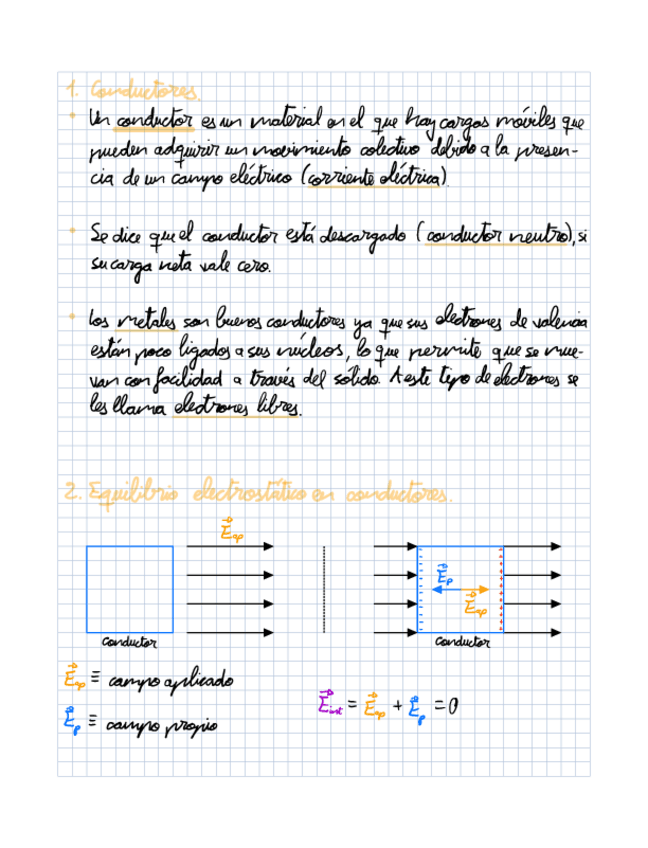 1. Conductores.
• Un conductor es un material en el que hay cargas móviles que
pueden adquirir un movimiento colectivo debido a la presen-
cia de un campo eléctrico (corriente eléctrica).
• Se dice que el conductor está descargado (conductor neutro), si
su carga neta vale cero.
• Los metales son buenos conductores ya que sus electrones de valencia
están poco ligados a sus núcleos, lo que permite que se mue-
van con facilidad a través del sólido. A este tipo de electrones se
les llama electrones libres.
2. Equilibrio electrostático en conductores.
E⃗ap
E⃗p
E⃗ap
conductor
conductor
E⃗ap ≡ campo aplicado
E⃗int = E⃗ap + E⃗p = 0
E⃗p ≡ campo propio